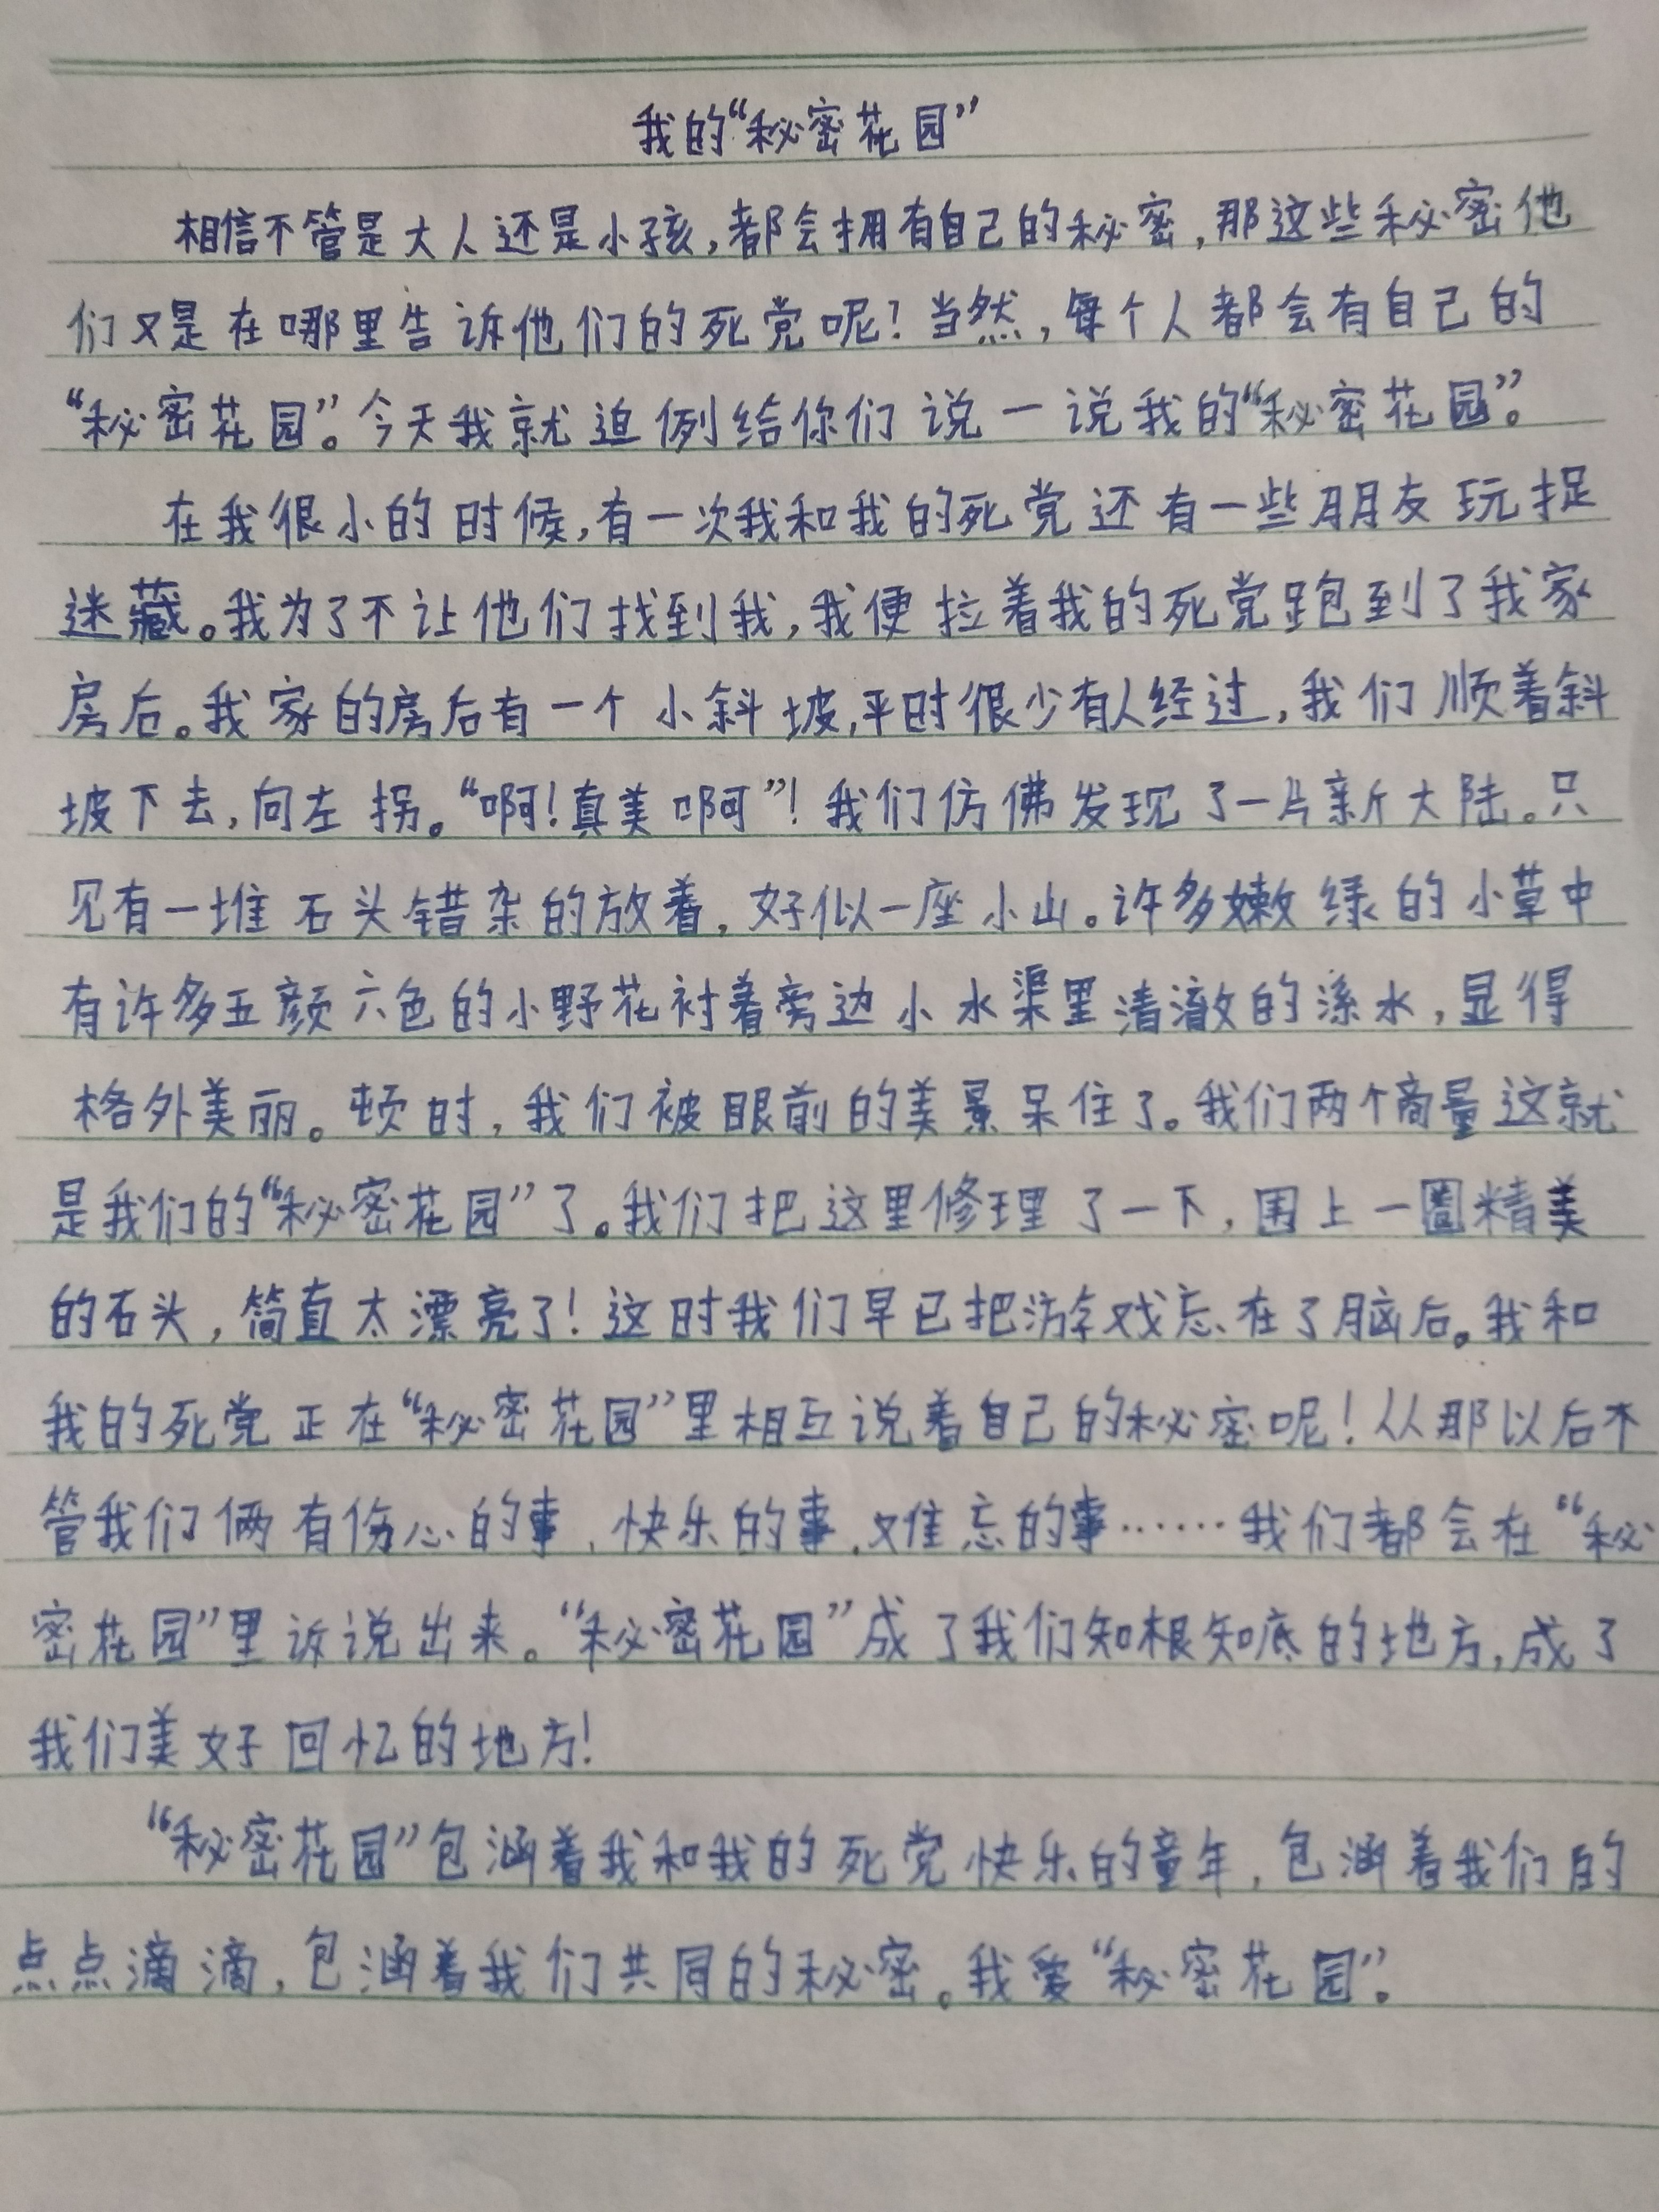 我的“秘密花园”
相信不管是大人还是小孩,都会拥有自己的秘密,那这些秘密他
们又是在哪里告诉他们的死党呢?当然,每个人都会有自己的
“秘密花园”。今天我就迫例给你们说一说我的“秘密花园”。
在我很小的时候,有一次我和我的死党还有一些朋友玩捉
迷藏。我为了不让他们找到我,我便拉着我的死党跑到了我家
房后。我家的房后有一个小斜坡,平时很少有人经过,我们顺着斜
坡下去,向左拐。“啊!真美啊”!我们仿佛发现了一片新大陆。只
见有一堆石头错杂的放着,好似一座小山。许多嫩绿的小草中
有许多五颜六色的小野花衬着旁边小水渠里清澈的溪水,显得
格外美丽。顿时,我们被眼前的美景呆住了。我们两个商量这就
是我们的“秘密花园”了。我们把这里修理了一下,围上一圈精美
的石头,简直太漂亮了!这时我们早已把游戏忘在了脑后。我和
我的死党正在“秘密花园”里相互说着自己的秘密呢!从那以后不
管我们俩有伤心的事、快乐的事、难忘的事……我们都会在“秘
密花园”里诉说出来。“秘密花园”成了我们知根知底的地方,成了
我们美好回忆的地方!
“秘密花园”包涵着我和我的死党快乐的童年,包涵着我们的
点点滴滴,包涵着我们共同的秘密。我爱“秘密花园”。